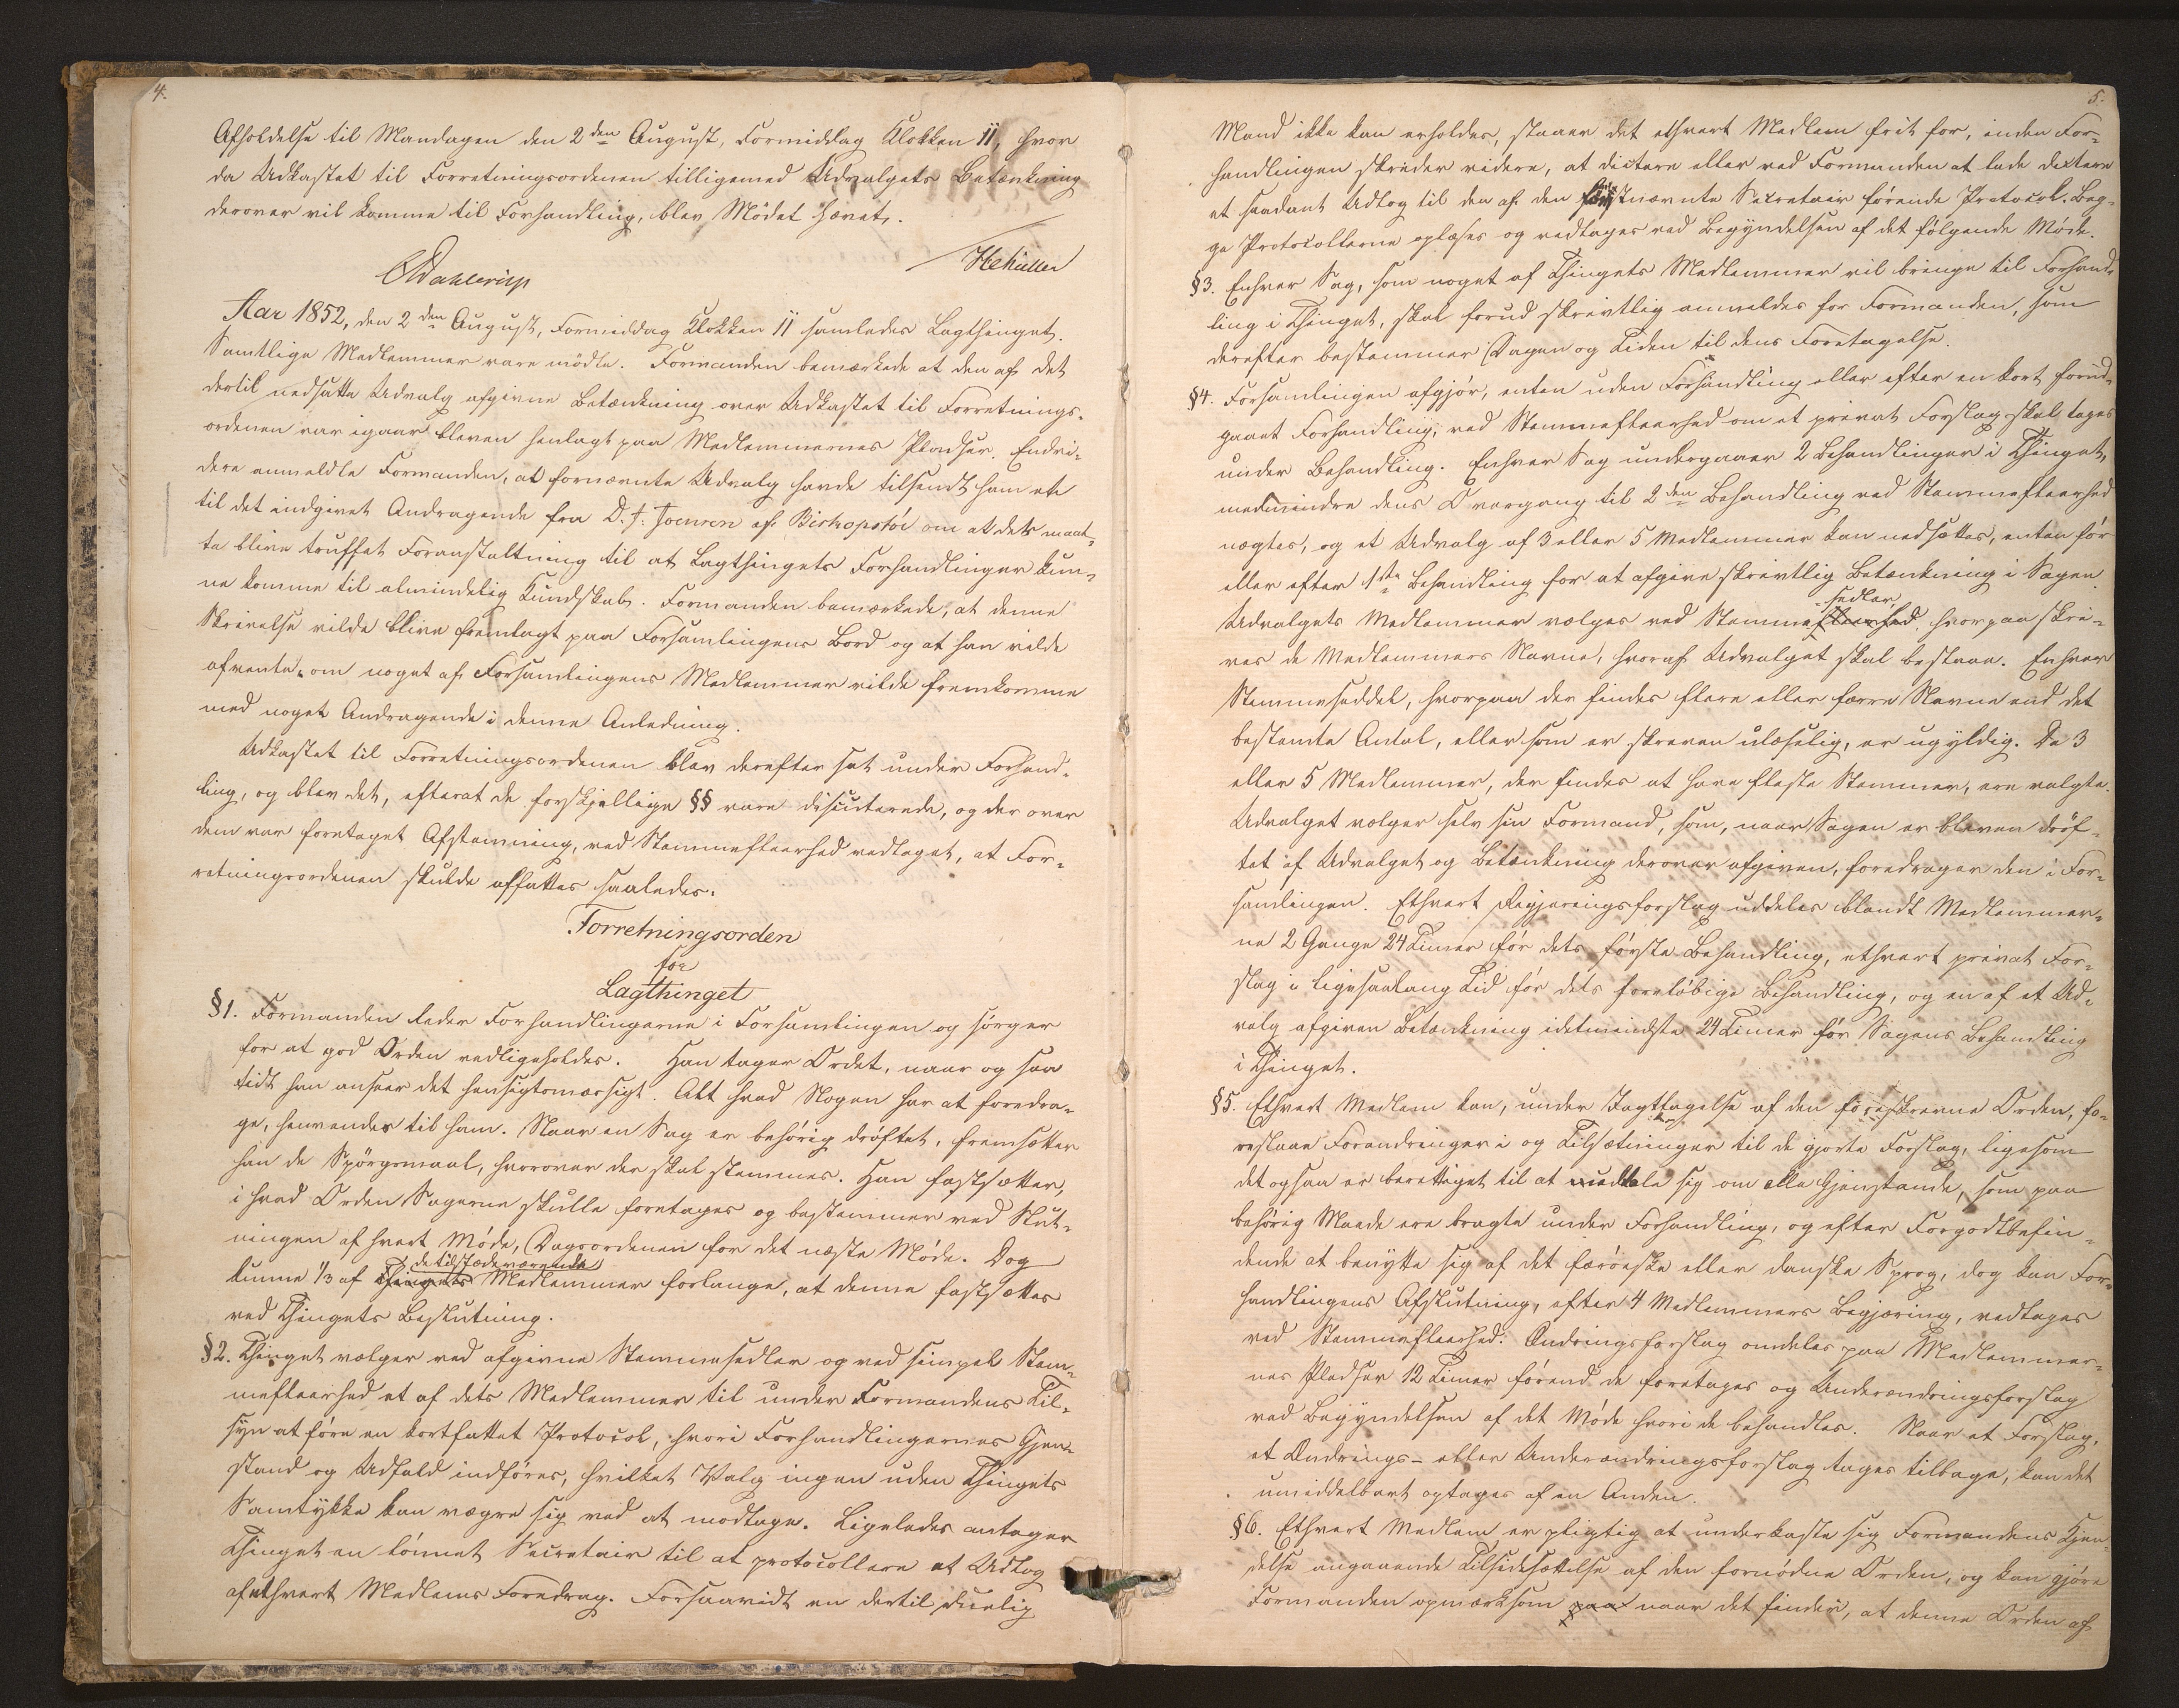 4.
Afholdelse til Mandagen den 2den August, Formiddag Klokken 11, hvor
da Udkastet til Forretningsordenen tilligemed Udvalgets Betænkning
derover vil komme til Forhandling, blev Mödet hævet.
CDahlerup
HCMüller
Aar 1852, den 2den August, Formiddag Klokken 11 samledes Lagthinget.
Samtlige Medlemmer vare mödte. Formanden bemærkede at den af det
dertil nedsatte Udvalg afgivne Betænkning over Udkastet til Forretnings-
ordenen var igaar bleven henlagt paa Medlemmernes Pladser. Endvi-
dere anmeldte Formanden, at fornævnte Udvalg havde tilsendt ham et
til det indgivet Andragende fra D. J. Joensen af Bishopstöe om at det maat-
te blive truffet Foranstaltning til at Lagthingets Forhandlinger kun-
ne komme til almindelig Kundskab. Formanden bemærkede, at denne
Skrivelse vilde blive fremlagt paa Forsamlingens Bord og at han vilde
afvente, om noget af Forsamlingens Medlemmer vilde fremkomme
med noget Andragende i denne Anledning.
Udkastet til Forretningsordenen blev derefter sat under Forhand-
ling, og blev det, efterat de forskjellige §§ vare discuterede, og der over
dem var foretaget Afstemning, ved Stemmefleerhed vedtaget, at For-
retningsordenen skulde affattes saaledes.
Forretningsorden
for
Lagthinget
§1. Formanden leder Forhandlingerne i Forsamlingen og sörger
for at god Orden vedligeholdes. Han tager Ordet, naar og saa
tidt han anseer det hensigtsmæssigt. Alt hvad Nogen har at foredra-
ge, henvendes til ham. Naar en Sag er behörig dröftet, fremsætter
han de Spörgsmaal, hvorover der skal stemmes. Han fastsætter,
i hvad Orden Sagerne skulle foretages og bestemmer ved Slut-
ningen af hvert Möde, Dagsordenen for det næste Möde. Dog
de tilstedeværende
kunne 1/3 af Thingets Medlemmer forlange, at denne fastsættes
ved Thingets Beslutning.
§2. Thinget vælger ved afgivne Stemmesedler og ved simpel Stem-
mefleerhed et af dets Medlemmer til under Formandens Til-
syn at före en kortfattet Protocol, hvori Forhandlingernes Gjen-
stand og Udfald indföres, hvilket Valg ingen uden Thingets
Samtykke kan vægre sig ved at modtage. Ligeledes antager
Thinget en lönnet Secretair til at protocollere et Udtog
af ethvert Medlems Foredrag. Forsaavidt en dertil duelig
5.
Mand ikke kan erholdes, staaer det ethvert Medlem frit for, inden For-
handlingen skrider videre, at dictere eller ved Formanden at lade dictere
et saadant Udtog til den af den förstnævnte Secretair förende Protocol. Beg-
ge Protocollerne oplæses og vedtages ved Begyndelsen af det fölgende Möde.
§3. Enhver Sag, som noget af Thingets Medlemmer vil bringe til Forhand-
ling i Thinget, skal forud skrivtlig anmeldes for Formanden, som
derefter bestemmer Dagen og Tiden til dens Foretagelse.
§4. Forsamlingen afgjör, enten uden Forhandling eller efter en kort forud-
gaaet Forhandling, ved Stemmefleerhed om et privat Forslag skal tages
under Behandling. Enhver Sag undergaaer 2 Behandlinger i Thinget,
medmindre dens Overgang til 2den Behandling ved Stemmefleerhed
nægtes, og et Udvalg af 3 eller 5 Medlemmer kan nedsættes, enten för
eller efter 1ste Behandling for at afgive skrivtlig Betænkning i Sagen.
sedler
Udvalgets Medlemmer vælges ved Stemmefleerhed, hvorpaa skri-
ves de Medlemmers Navne, hvoraf Udvalget skal bestaae. Enhver
Stemmeseddel, hvorpaa der findes flere eller færre Navne end det
bestemte Antal, eller som er skreven ulæselig, er ugyldig. De 3
eller 5 Medlemmer, der findes at have fleste Stemmer, ere valgte.
Udvalget vælger selv sin Formand, som, naar Sagen er bleven dröf-
tet af Udvalget og Betænkning derover afgiven, foredrager den i For-
samlingen. Ethvert Regjeringsforslag uddeles blandt Medlemmer-
ne 2 Gange 24 Timer för dets förste Behandling, ethvert privat For-
slag i ligesaalang Tid för dets foreløbige Behandling, og en af et Ud-
valg afgiven Betænkning idetmindste 24 Timer för Sagens Behandling
i Thinget.
§5. Ethvert Medlem kan, under Iagttagelse af den foreskrevne Orden, fo-
reslaae Forandringer i og Tilsætninger til de gjorte Forslag, ligesom
det ogsaa er berettiget til at udtale sig om alle Gjenstande, som paa
behörig Maade ere bragte under Forhandling, og efter Forgodtbefin-
dende at benytte sig af det færöeske eller danske Sprog, dog kan For-
handlingens Afslutning, efter 4 Medlemmers Begjæring, vedtages
ved Stemmefleerhed. Ændringsforslag omdeles paa Medlemmer-
nes Pladser 12 Timer förend de foretages og Underændringsforslag
ved Begyndelsen af det Möde hvori de behandles. Naar et Forslag,
et Ændrings- eller Underændringsforslag tages tilbage, kan det
umiddelbart optages af en Anden.
§6. Ethvert Medlem er pligtig at underkaste sig Formandens Kjen-
delse angaaende Tilsidesættelse af den fornödne Orden, og kan gjöre
Formanden opmærksom paa naar det finder, at denne Orden af